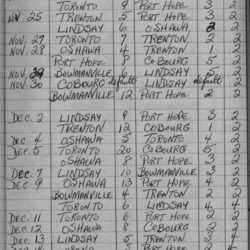 TORONTO 9 PORT HOPE 3 2
NOV. 25 TRENTON 5 PORT HOPE 2 2
LINDSAY 6 OSHAWA 2 2
NOV. 27 TORONTO 7 TRENTON 2 2
NOV. 28 OSHAWA 4 TRENTON 1 2
PORT HOPE 8 COBOURG 5 2
NOV. BOWMANVILLE LINDSAY 2
NOV. 30 COBOURG default LINDSAY default 2
BOWMANVILLE 12 PORT HOPE 2 2
DEC. 2 LINDSAY 9 PORT HOPE 3 2
TRENTON 12 COBOURG 2
DEC. 4 OSHAWA 5 TORONTO 4 2
DEC. 5 TORONTO 20 COBOURG 5 2
OSHAWA 8 PORT HOPE 3 2
DEC. 7 LINDSAY 10 BOWMANVILLE 3 2
DEC. 9 OSHAWA 13 PORT HOPE 4 2
BOWMANVILLE 4 TRENTON 2
TORONTO LINDSAY 4 2
DEC. 11 TORONTO 6 PORT HOPE 2 2
DEC. 12 OSHAWA 8 COBOURG 2 2
DEC. 13 LINDSAY 5 TRENTON 4 2
PORT HOPE 2